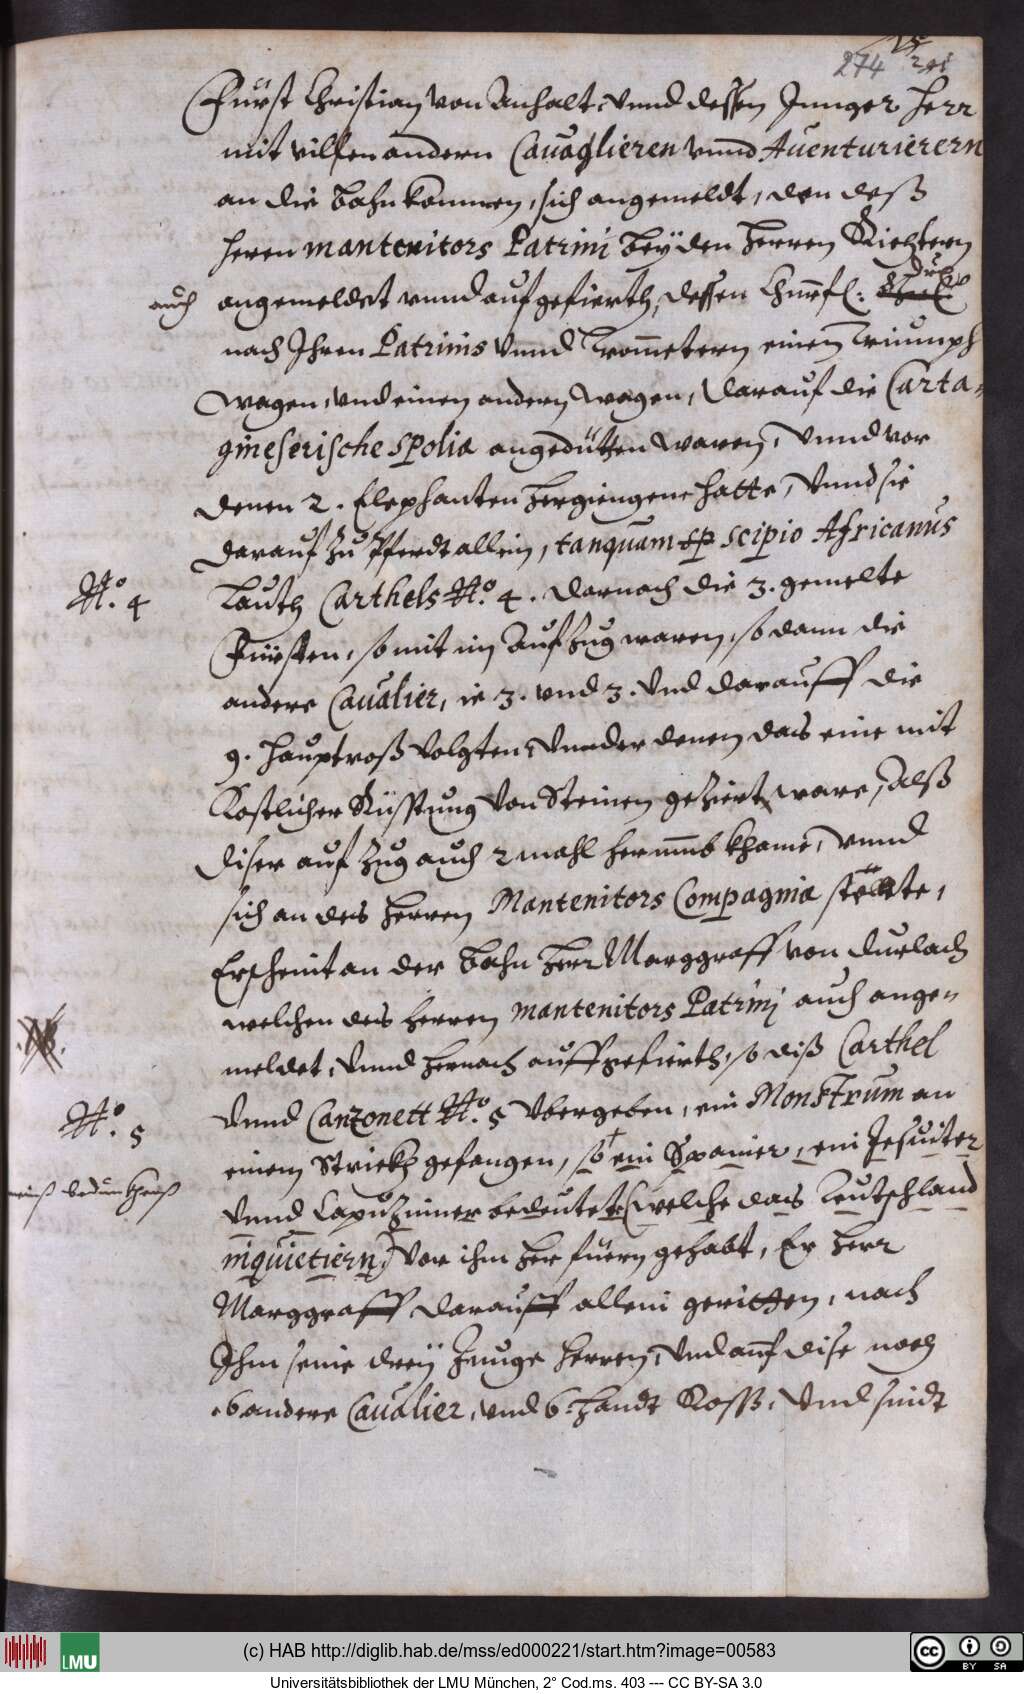 274
Fürst Christian von Anhalt, vnnd dessen Junger Herr
mit villen andern Cauaglieren vnnd Auenturierern
an die bahn kommen, sich angemeldt, den deß
Herrn mantenitors Patrini beÿ den Herren Richtern
auch angemeldet vnnd aufgefierth, dessen Churfl: Drl
nach Ihren Patrinis vnnd Trometern einen Triumph
wagen, vnd einen andern wagen, darauf die Carta-
gineserische spolia angedütten waren, vnnd vor
denen 2. Elephanten hergiengen hatte, vnnd sie
darauf zu Pferdt allein, tanquam scipio Africanus
N.o 4 lauth Carthels N.o 4. darnach die 3. gemelte
Fürsten, so mit im Aufzug waren, so dann die
andere Caualier, ie 3. vnd 3. vnd darauff die
9. hauptroß volgten, vnnder denen das eine mit
Kostlicher Rüsstung von Steinen geziert ware, Alß
diser aufzug auch 2 mahl herumb khame, vnnd
sich an des Herren Mantenitors Compagnia stellte,
Erscheint an der bahn Herr Marggraff von Durlach
welchen des Herren mantenitors Patrinj auch ange-
NB. meldet, vnnd hernach auffgefierth, so diß Carthel
N.o 5 vnnd Canzonett N.o 5 vbergeben, ein Monstrum an
einem Strickh gefangen, so ein Spanier, ein Jesuiter
meinß bedunkhenß vnnd Capuziner bedeutete (welche das Teutschland
inquietiern) vor ihm her füern gehabt, Er Herr
Marggraff darauff allein geritten, nach
Ihm seine dreÿ Junge Herren, vnd auf dise noch
6 andere Caualier, vnd 6. handt Ross, vnd sindt
(c) HAB http://diglib.hab.de/mss/ed000221/start.htm?image=00583
LMU
cc BY SA
Universitätsbibliothek der LMU München, 2° Cod.ms. 403 --- CC BY-SA 3.0